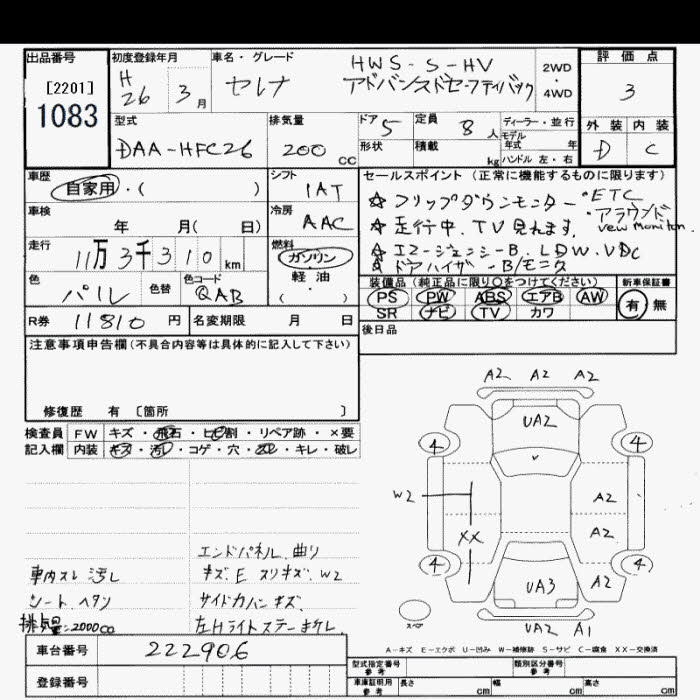 出品番号
[2201]
1083
初度登録年月
H
26 3月
車名・グレード
HWS-S-HV
セレナ アドバンスドセーフティパック
2WD
・
4WD
評価点
3
外装 内装
D C
型式
DAA-HFC26
排気量
200 cc
ドア 5
定員 8人
形状
積載 kg
ディーラー・並行
モデル
年式 年
ハンドル 左・右
車歴
自家用・( )
シフト
IAT
車検
年 月( 日)
冷房
AAC
走行
11万3千310km
燃料
ガソリン
・
軽油
・
( )
色
パール
色替
色コード
QAB
R券 11810円
名変期限 月 日
セールスポイント(正常に機能するものに限ります)
☆フリップダウンモニター ・ETC
☆走行中、TV見れます。 ・アラウンド
view moniton.
☆エマージェンシーB、LDW、VDC
☆ドアバイザー・B/モニタ
装備品(純正品に限り○をつけてください)
PS PW ABS エアB AW
SR ナビ TV カワ
新車保証書
有 無
後日品
注意事項申告欄(不具合内容等は具体的に記入して下さい)
修復歴 有 〔箇所 〕
検査員 FW キズ・飛石・ヒビ割・リペア跡・×要
記入欄 内装 キズ・汚レ・コゲ・穴・スレ・キレ・破レ
A2 A2 A2
UA2
4 4
W2
A2
XX
A2
4 4
UA3
A2
UA2 A1
スペア
エンドパネル 曲り
車内スレ 汚レ
キズ、E スリキズ、W2
シート ヘタン
サイドカバー キズ、
排気量:2000cc
左Hライトステーまげし
A-キズ E-エクボ U-凹み W-補修跡 S-サビ C-腐食 XX-交換済
車台番号
222906
登録番号
型式指定番号
参考
類別区分番号
参考
車庫証明用
参考
長さ cm
幅 cm
高さ cm